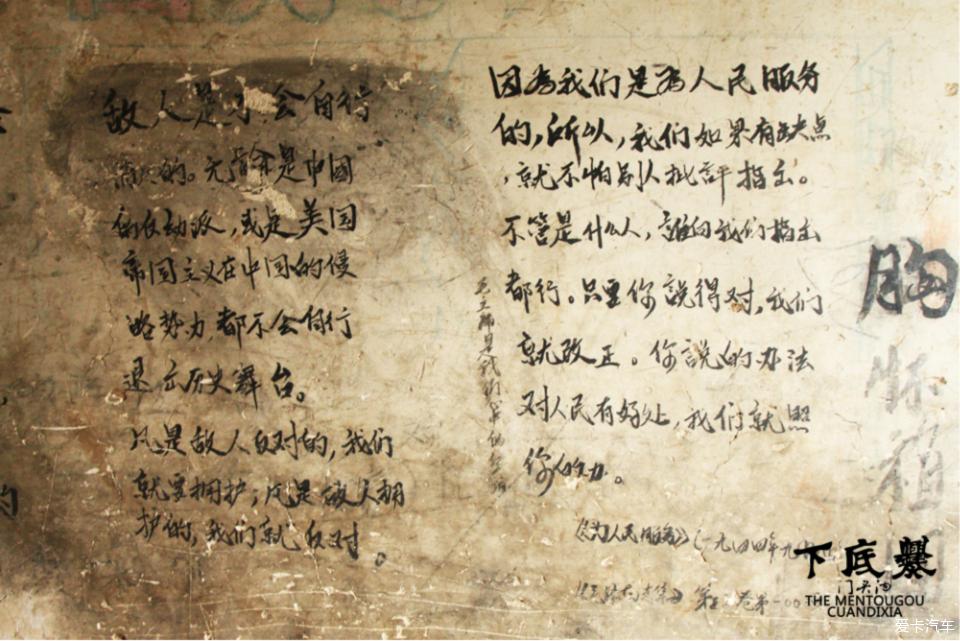 敌人是不会自行
消灭的。无论是中國
的反动派，或是美国
帝国主义在中国的侵
略势力，都不会自行
退出历史舞台。
凡是敌人反对的，我们
就要拥护；凡是敌人拥
护的，我们就反对。
因为我们是为人民服务
的，所以，我们如果有缺点
，就不怕别人批評指出。
不管是什么人，誰向我们指出
都行。只要你說得对，我们
就改正。你說的办法
对人民有好处，我们就照
你的办。
《为人民服务》（一九四四年九
胸怀祖国
下底爨
门头沟
THE MENTOUGOU
CUANDIXIA
爱卡汽车